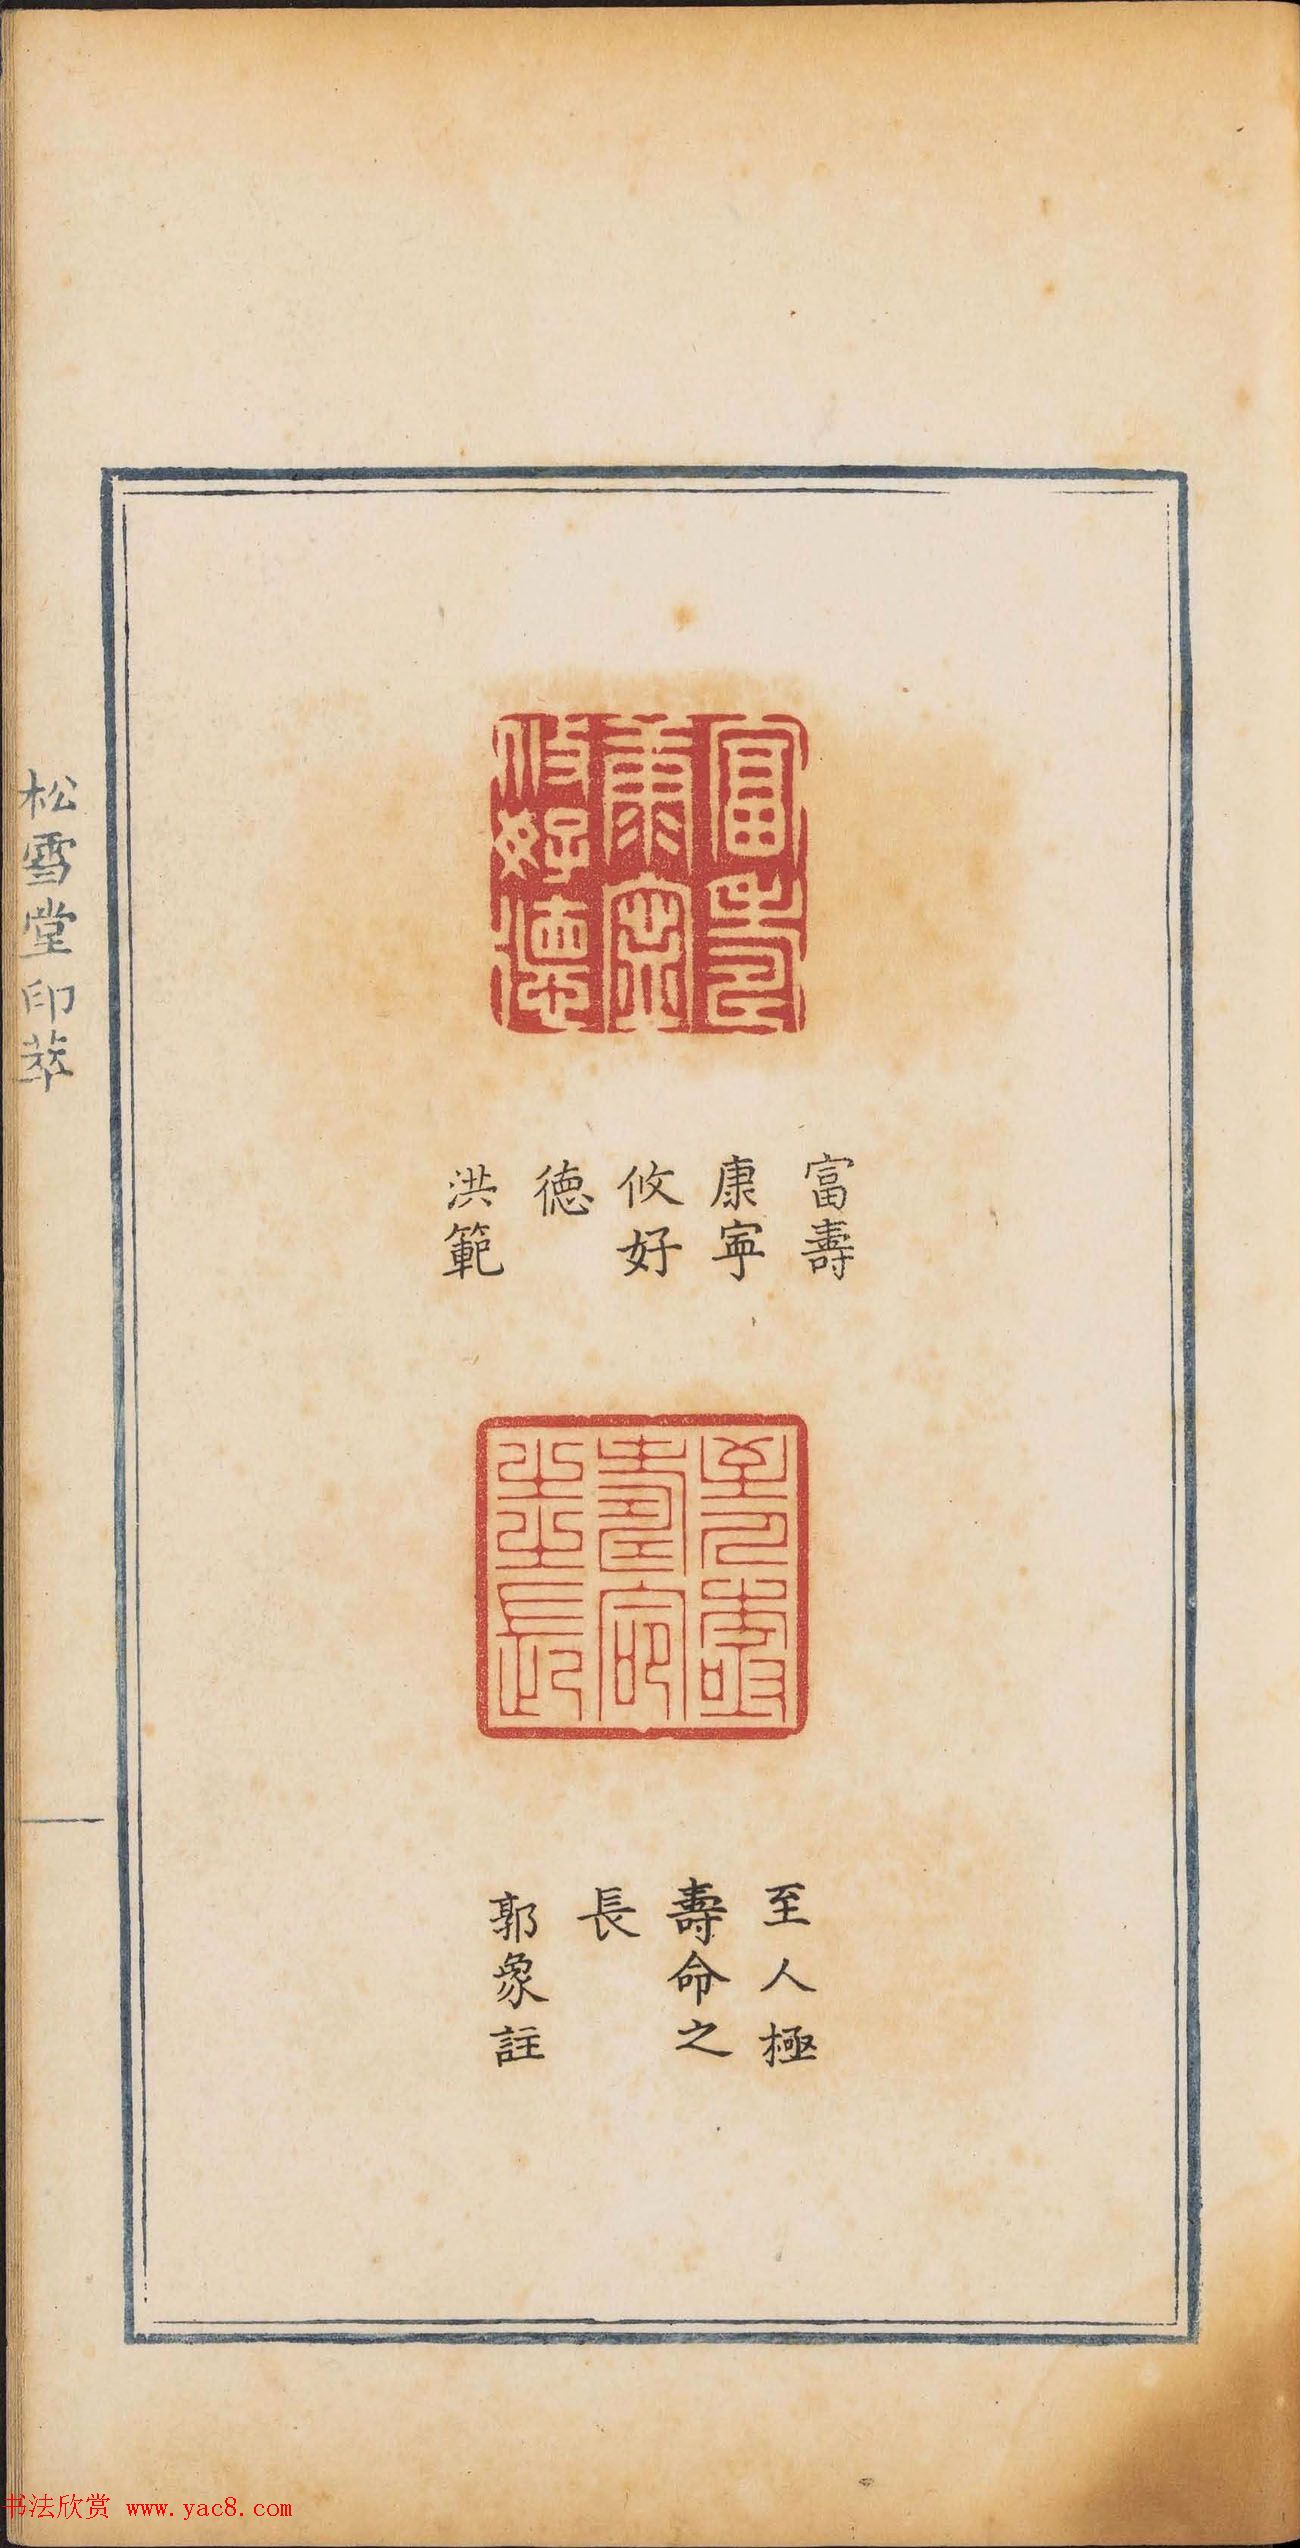 富壽
康寧
攸好
德
富壽
康寧
攸好
德
洪範
至人極
壽命之
長
至人極
壽命之
長
郭象註
松雪堂印萃
书法欣赏 www.yac8.com